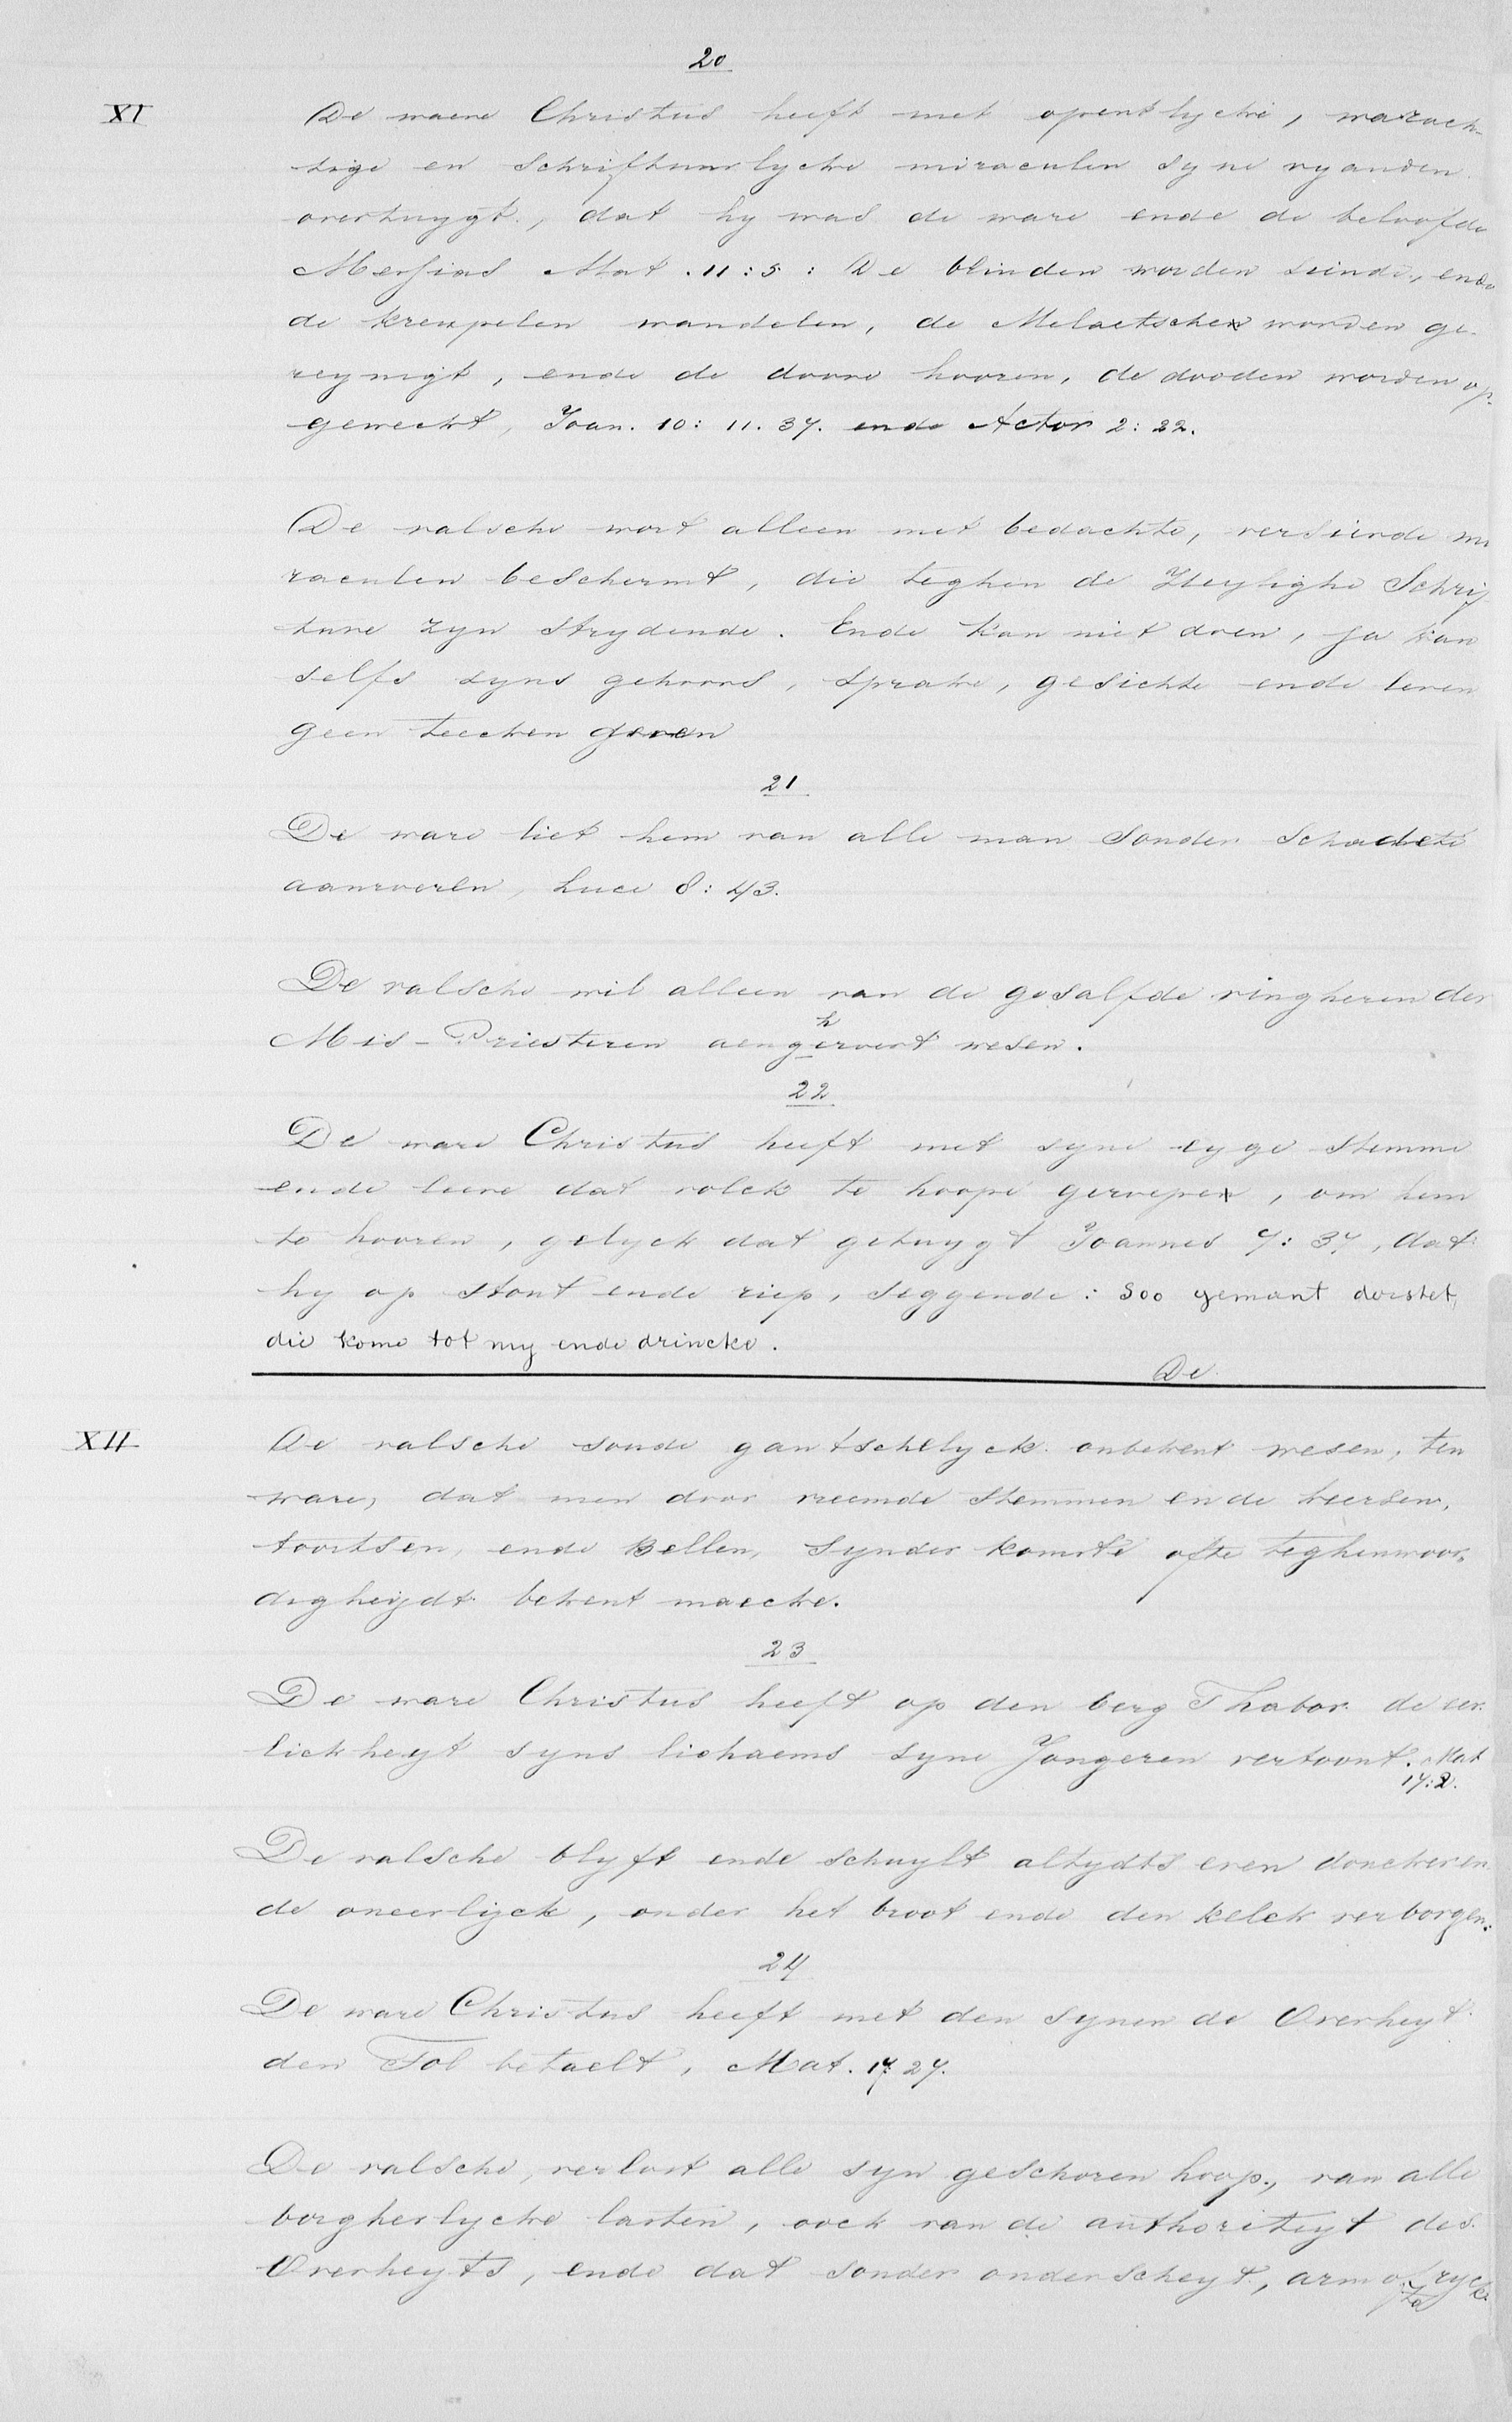 20
XI
De waere Christus heeft met opentlycke, warach-
tige en Schriftuurlycke miraculen syne vyanden
overtuygt, dat hy was de ware ende de beloofde
Messias Mat. 11:5: De blinden worden siende, ende
de kreupelen wandelen, de Melaetschen worden ge-
reynigt, ende de doove hooren, de dooden worden op-
geweckt, Joan. 10: 11. 37. ende Actor 2: 22.
De valsche wort alleen met bedachte, versierde mi
raculen beschermt, die teghen de Heylighe Schrif
ture zyn strydende. Ende kan niet doen, ja kan
selfs syns gehoors, sprake, gesichte ende leven
geen teecken geven
21
De ware liet hem van alle man sonder
aanroeren, Luce 8: 43.
De valsche wil alleen van de gesalfde vingheren der
h
Mis-Priesteren aengeroert wesen.
22
De ware Christus heeft met syne eyge stemme
ende leere dat volck te hoope geroepen, om hem
te hooren, gelyck dat getuygt Joannes 7: 37, dat
hy op stont ende riep, seggende: Soo yemant dorstet,
die kome tot my ende drincke.
De
XII
De valsche soude gantschelyck onbekent wesen, ten
ware, dat men door vreemde stemmen ende keersen,
toortsen, ende Bellen, Synder komste ofte teghenwoor-
digheydt bekent maecke.
23
De ware Christus heeft op den berg Thabor de eer
lickheyt syns lichaems syne Jongeren vertoont. Mat
17:2.
De valsche blyft ende schuylt altydts even doncker en
de oneerlijck, onder het broot ende den kelck verborgen.
24
De ware Christus heeft met den synen de Overheyt
den Tol betaelt, Mat. 17: 27.
De valsche, verlost alle syn geschoren hoop, van alle
borgherlycke lasten, oock van de authoriteyt des
Overheyts, ende dat sonder onderscheyt, arm of ryck
te